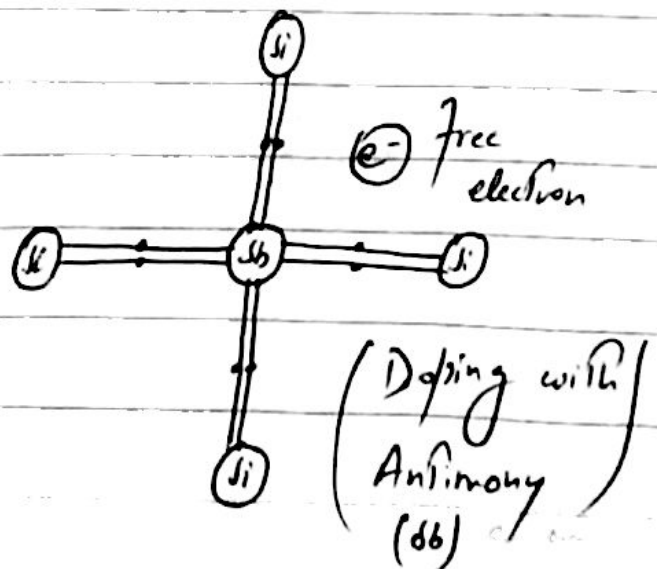 Si
e- free
electron
Si Sb Si
Doping with
Antimony
Si
(Sb)